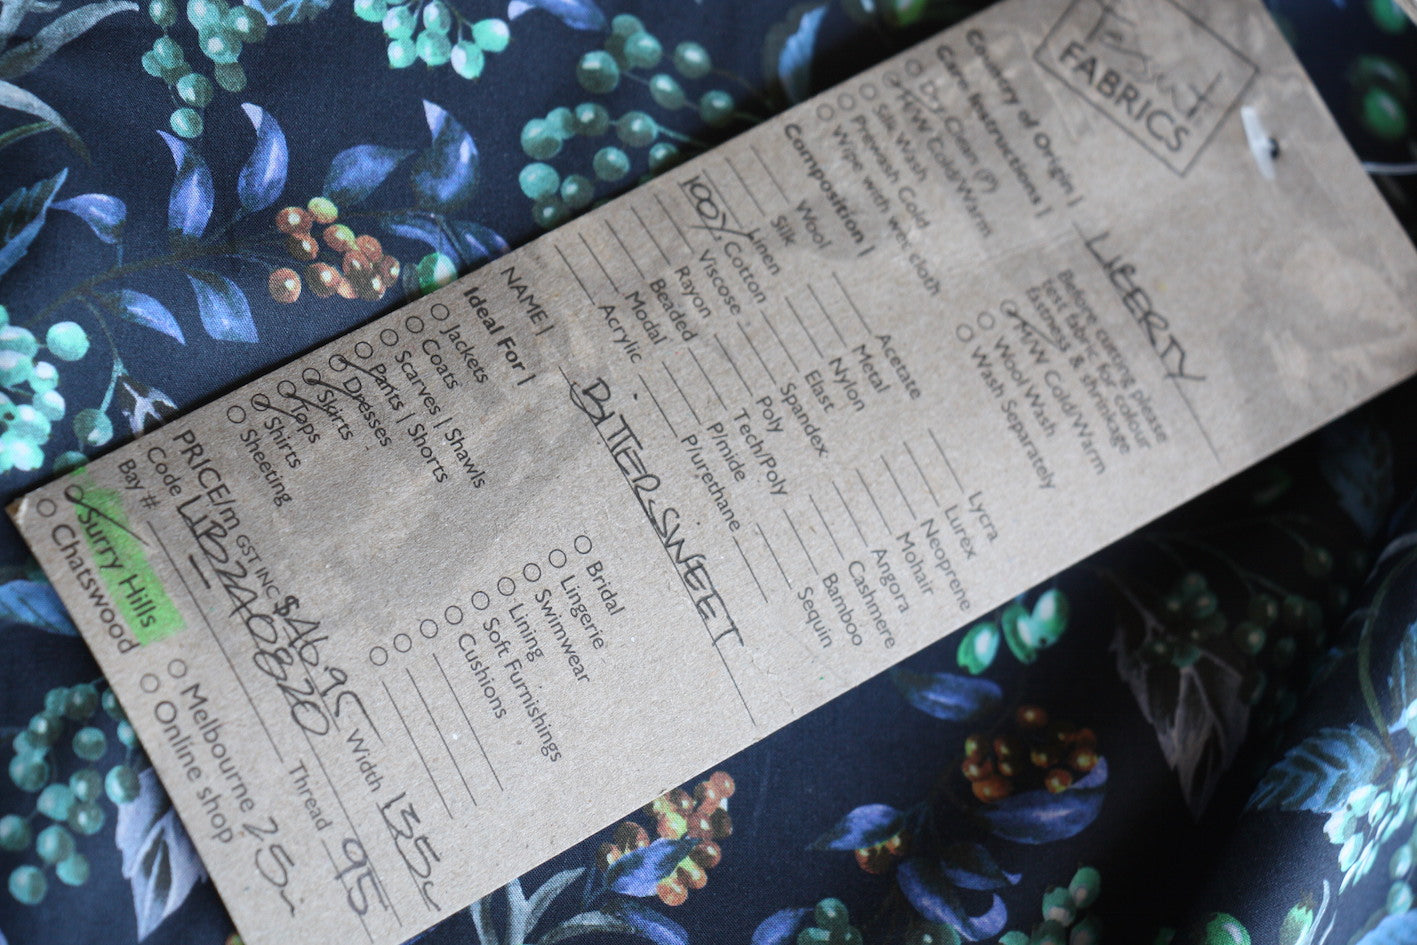 Tessuti
FABRICS
Country of Origin | LIBERTY
Care Instructions |
Dry Clean (P)
H/W Cold/Warm
Silk Wash
Prewash Cold
Wipe with wet cloth
Before cutting please
test fabric for colour
fastness & shrinkage
M/W Cold/Warm
Wool Wash
Wash Separately
Composition |
Wool
Silk
Linen
100% Cotton
Viscose
Rayon
Beaded
Modal
Acrylic
Acetate
Metal
Nylon
Elast
Spandex
Poly
Tech/Poly
P/mide
P/urethane
Lycra
Lurex
Neoprene
Mohair
Angora
Cashmere
Bamboo
Sequin
NAME | BITTERSWEET
Ideal For |
Jackets
Coats
Scarves | Shawls
Pants | Shorts
Dresses
Skirts
Tops
Shirts
Sheeting
Bridal
Lingerie
Swimwear
Lining
Soft Furnishings
Cushions
PRICE/m GST INC $46.95 Width 135c
Code LIB240820 Thread 95
Bay #
Surry Hills
Chatswood
Melbourne 25m
Online shop